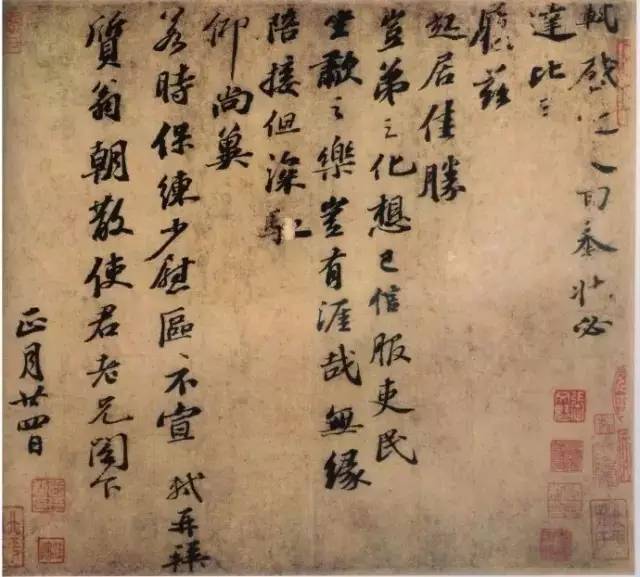 軾啟近人回奉狀必
達比
履茲
起居佳勝
豈弟之化想已信服吏民
坐歗之樂豈有涯哉無緣
陪接但深馳
仰尚冀
若時保練少慰區〻不宣 軾再拜
質翁朝散使君老兄閣下
正月廿四日